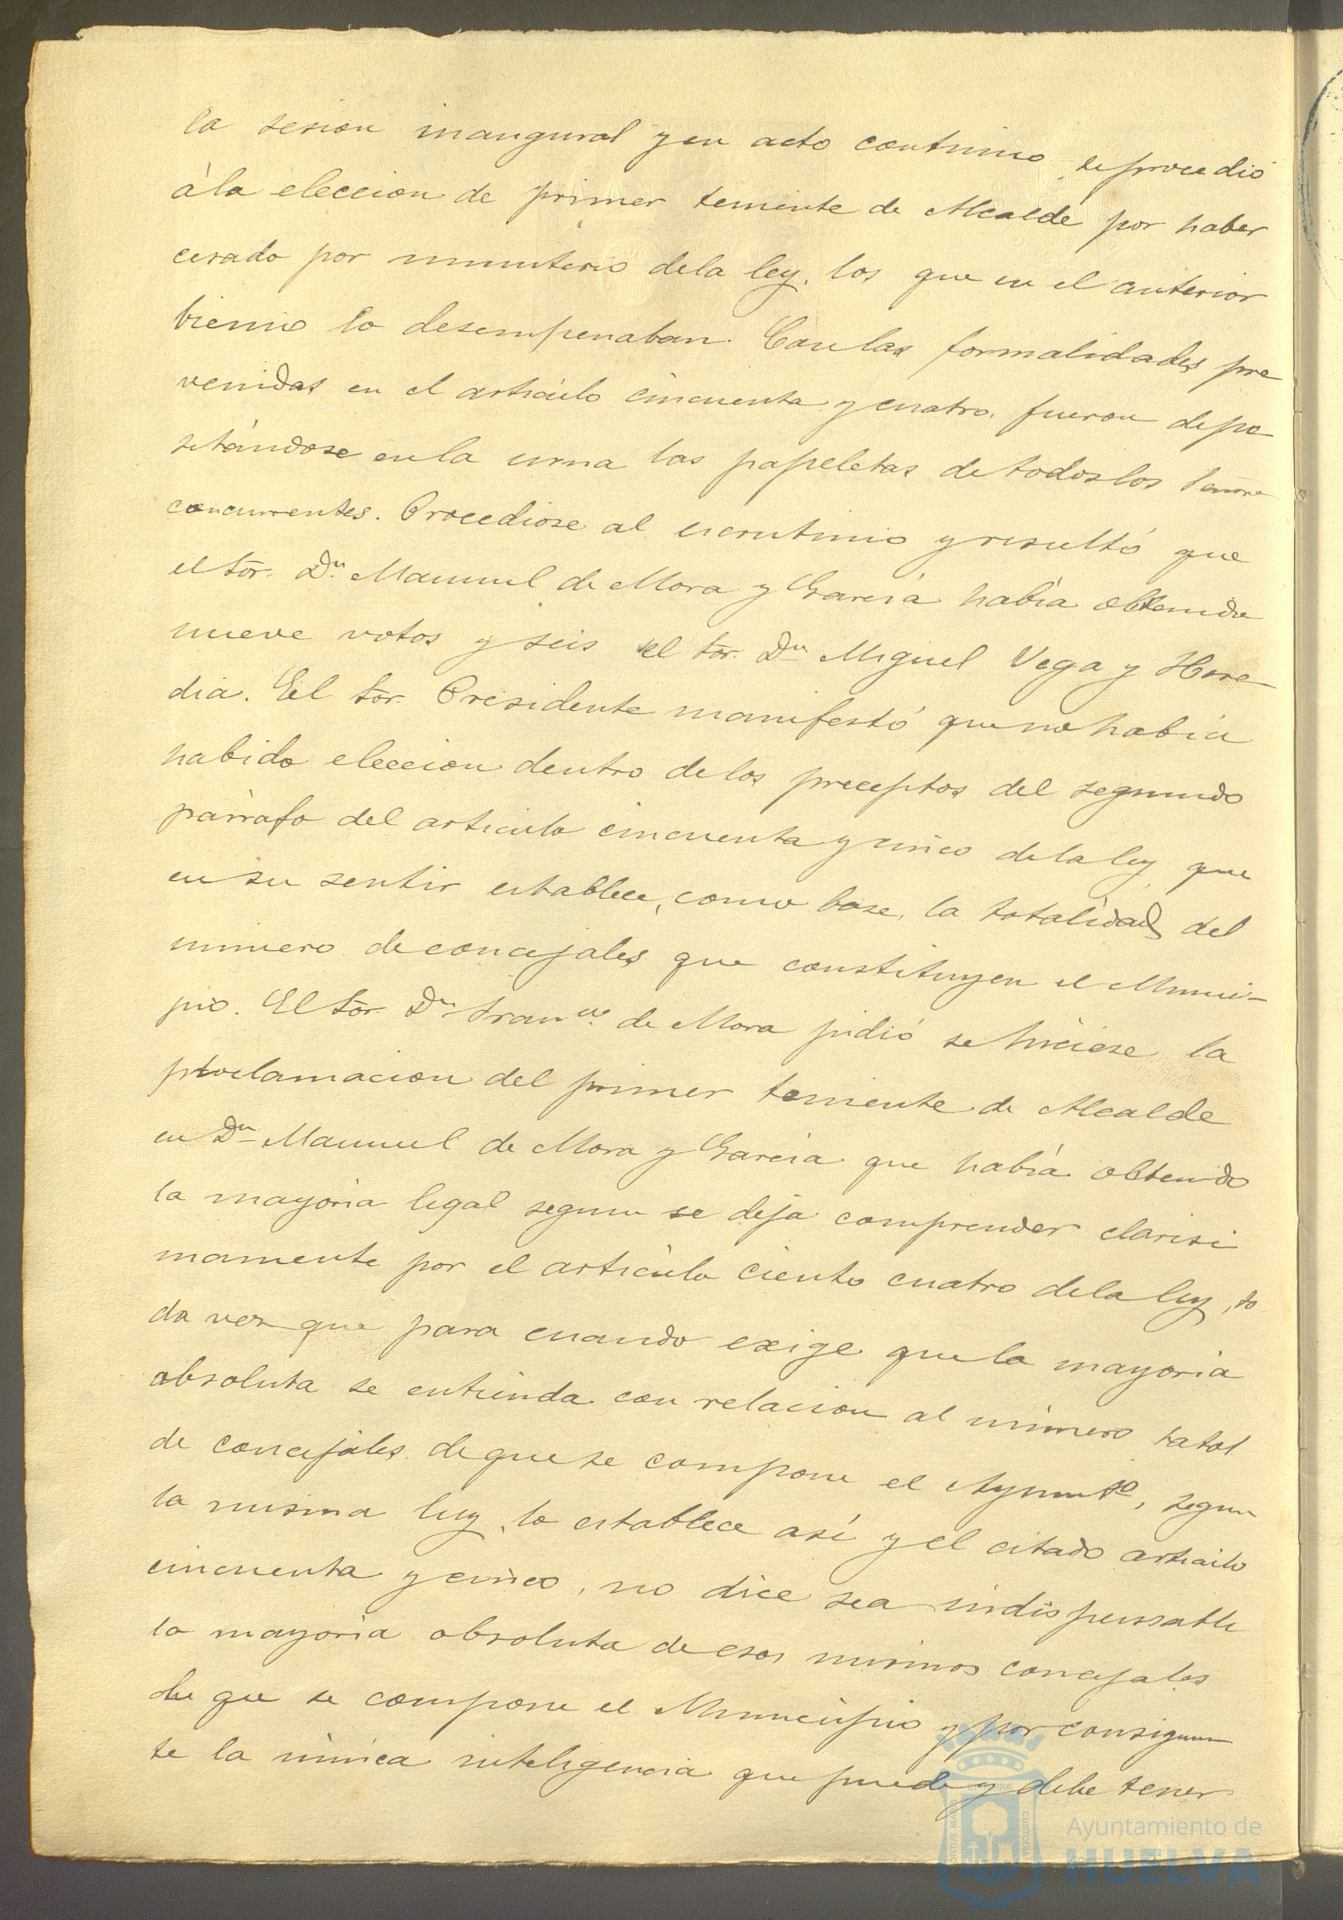 la sesion inaugural y en acto continuo, se procedió
á la eleccion de primer teniente de Alcalde por haber
cesado por ministerio de la ley, los que en el anterior
bienio lo desempeñaban. Con las formalidades pre
venidas en el artículo cincuenta y cuatro, fueron depo
sitándose en la urna las papeletas de todos los Señore
concurrentes. Procediose al escrutinio y resultó que
el Sor. Dn. Manuel de Mora y García había obtenido
nueve votos y seis el Sor. Dn Miguel Vega y Here-
dia. El Sor. Presidente manifestó que no había
habido eleccion dentro de los preceptos del segundo
párrafo del artículo cincuenta y cinco de la ley que
en su sentir establece, como base, la totalidad del
número de concejales que constituyen el Munici-
pio. El Sor. Dn Franco. de Mora pidió se hiciese la
proclamacion del primer teniente de Alcalde
en Dn Manuel de Mora y García que había obtenido
la mayoría legal segun se deja comprender clarisi
mamente por el artículo ciento cuatro de la ley, to
da vez que para cuando exige que la mayoria
absoluta se entienda con relacion al número total
de concejales de que se compone el Ayunto, segun
la misma ley, lo establece así y el citado artículo
cincuenta y cinco, no dice sea indispensable
la mayoría absoluta de esos mismos concejales
de que se compone el Municipio y por consiguien
te la única inteligencia que puede y debe tener
Ayuntamiento de
HUELVA